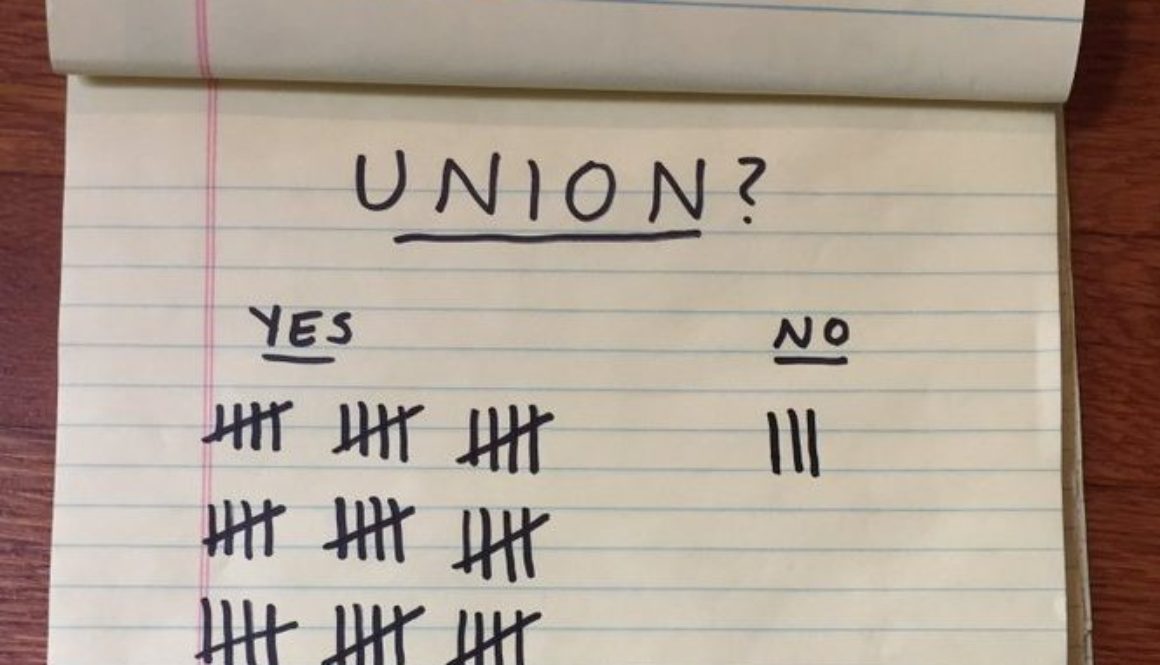 UNION?
YES NO
𝍸 𝍸 𝍸 |||
𝍸 𝍸 𝍸
𝍸 𝍸 𝍸